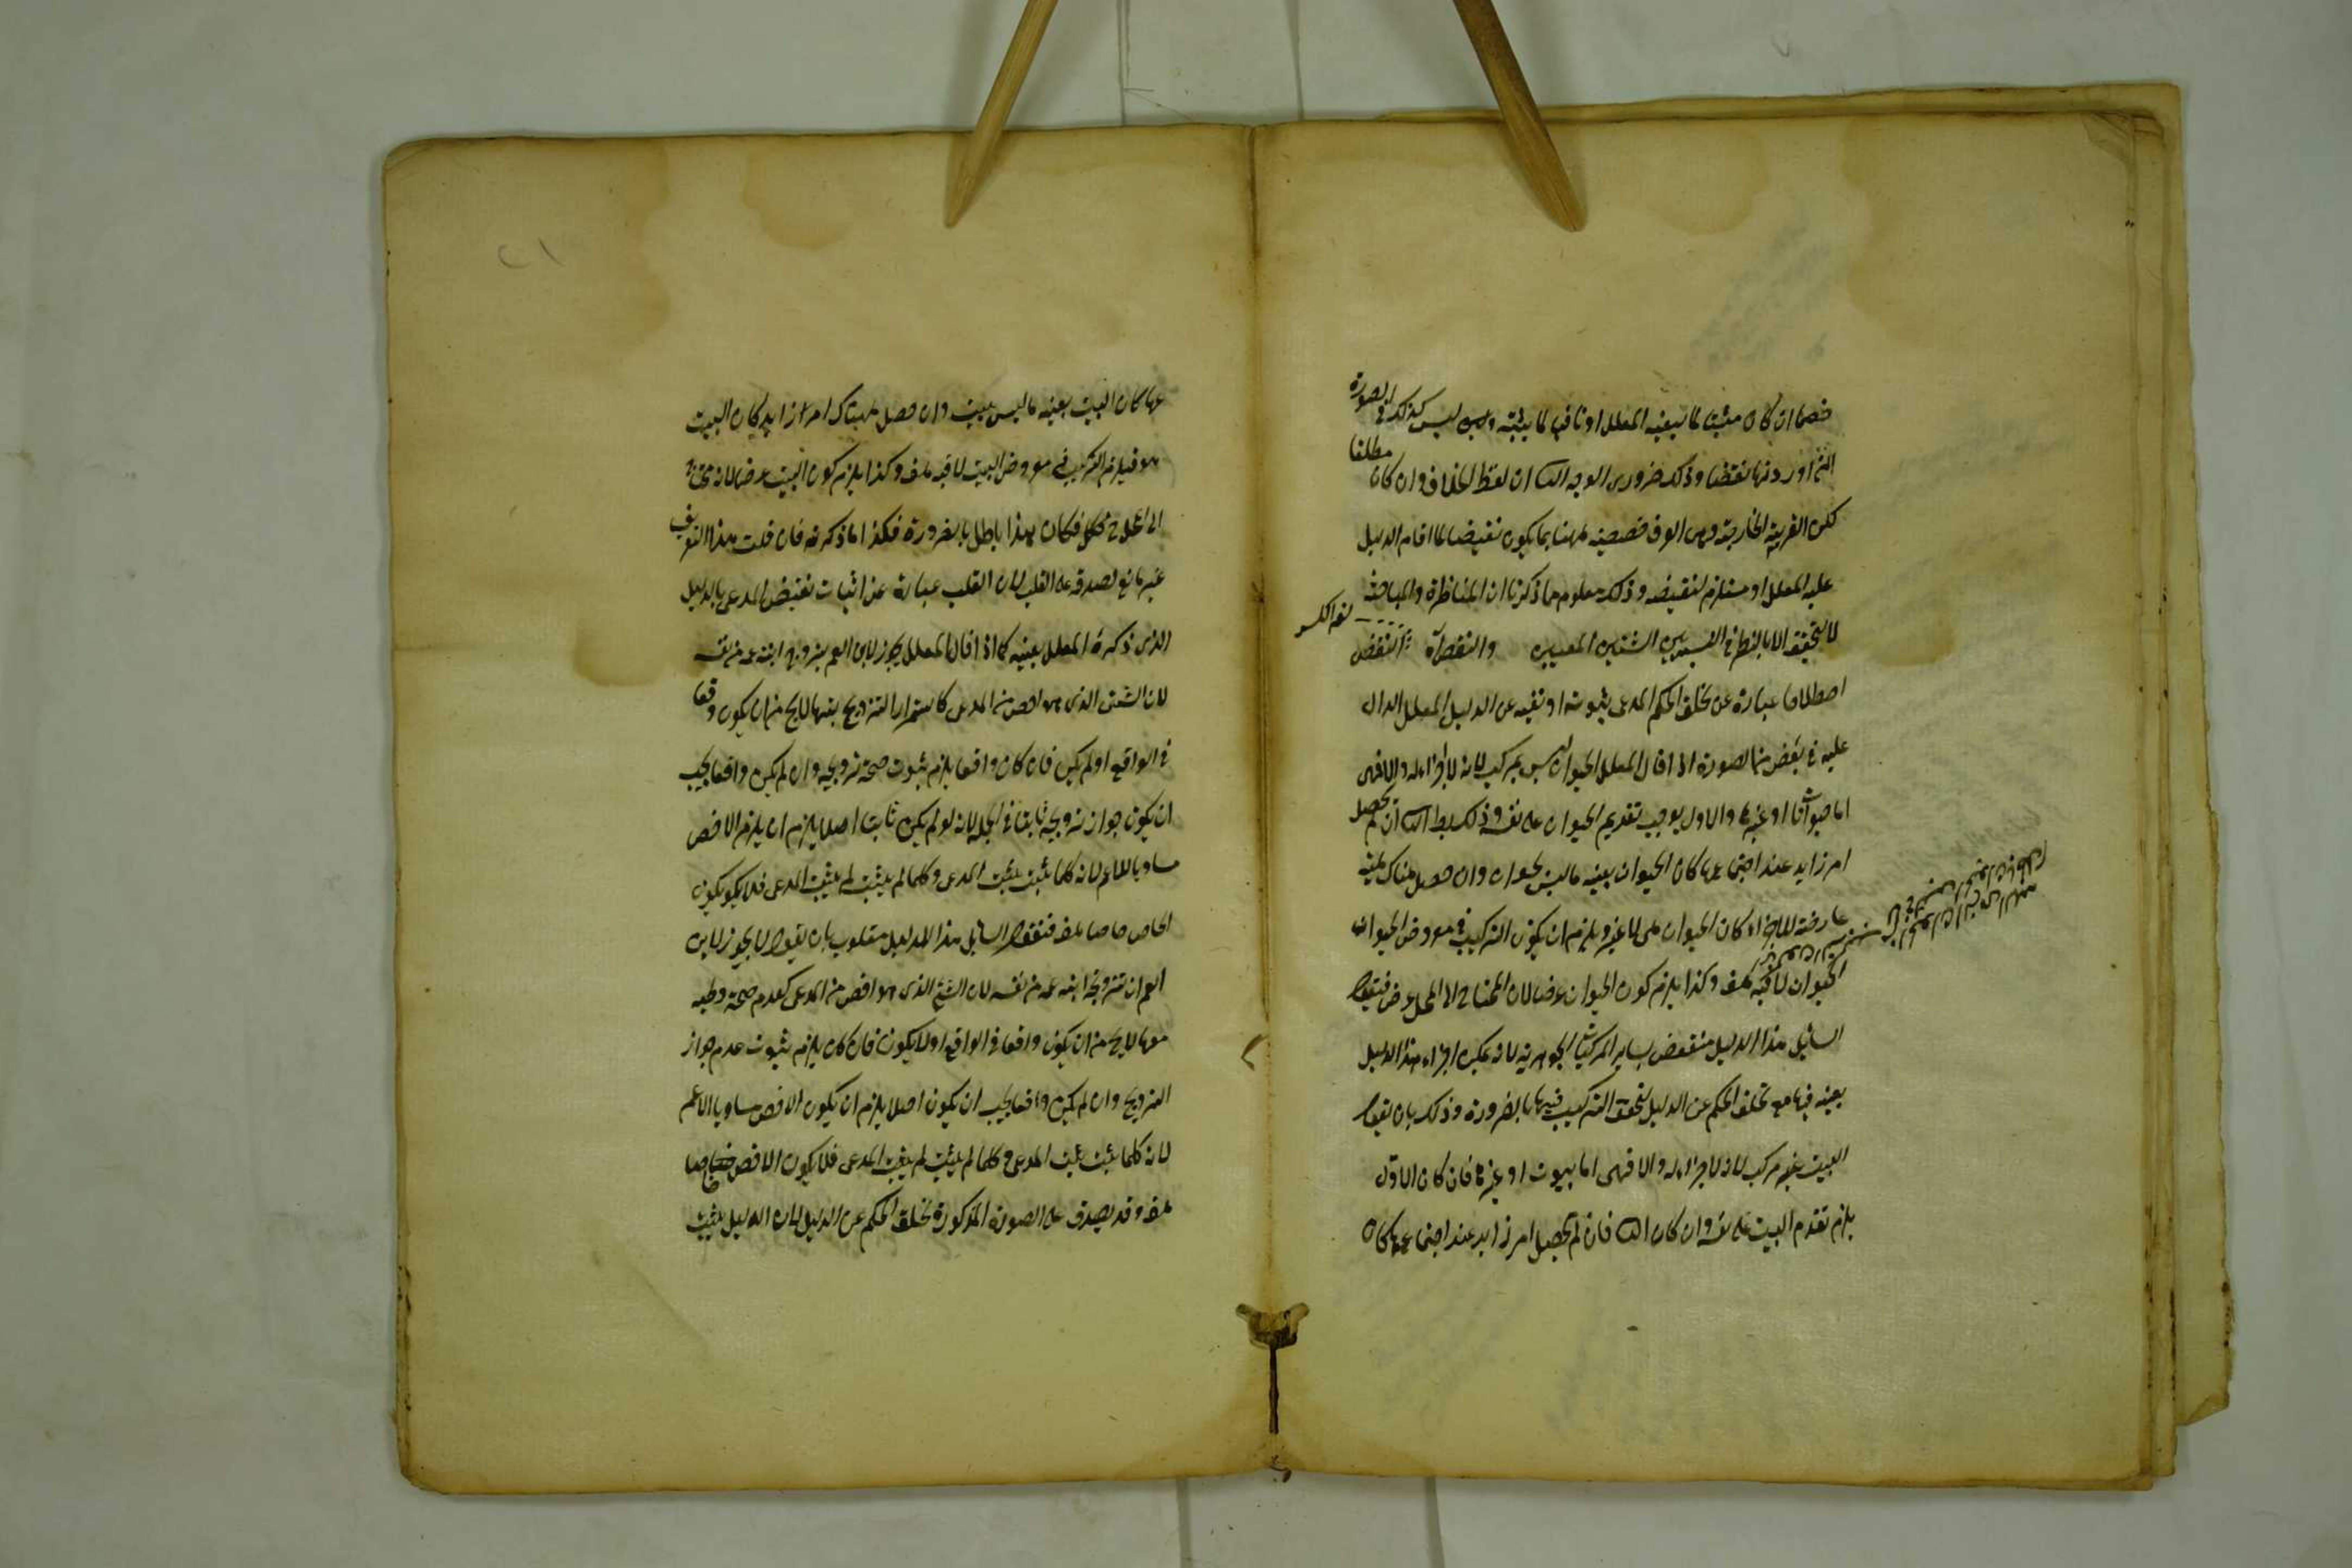 خصما ان كان مثبتا لما ينفيه المعلل او نافيا لما يثبته وليس كذلك في الصورة
التي اوردتها نقضا وذلك ضروري الوجه الثاني ان لفظ الخلاف وان كان مطلقا
لكن القرينة الخارجية وهي العرف خصصته ههنا بما يكون نقيضا لما اقام الدليل
عليه المعلل او مستلزم لنقيضه وذلك معلوم مما ذكرنا ان المناظرة والمباحثة
لا يتحقق الا بالنظر في النسبتين والنقض النقض
اصطلاحا عبارة عن تخلف الحكم المدعى بثبوته او نفيه عن الدليل المعلل الدال
عليه في بعض من الصورة اذا قال المعلل الحيوان ليس بمركب لانه لا جزء له والا فهي
اما حيوانات او غيرها والاول يوجب تقديم الحيوان على نفسه وذلك بط الثاني ان لم يحصل
امر زايد عند اجتماعها كان الحيوان بعينه ما ليس بحيوان وان حصل هناك هيئة
عارضة للاجزاء وكان الحيوان هي لا غير ويلزم ان يكون التركيب في معروض الحيوان
الحيوان لا فيه هف وكذا يلزم كون الحيوان عرضا لان المحتاج الى المحل عرض فيقول
السائل هذا الدليل منتقض بساير المركبات الجوهرية لانه يمكن اجراء هذا الدليل
بعينه فيها مع تخلف الحكم عن الدليل لتحقق التركيب فيها بالضرورة وذلك بان يقول
البيت غير مركب لانه لا جزء له والا فهي اما بيوت او غيرها فان كان الاول
يلزم تقدم البيت على نفسه وان كان الثاني فان لم يحصل امر زايد عند اجتماعها كان
عها كان البيت بعينه ما ليس ببيت وان حصل هناك امر زايد كان البيت
هو فيلزم التركيب في معروض البيت لا فيه هف وكذا يلزم كون البيت عرضا لانه محتاج
الى المحل فكان هذا باطل بالضرورة فكذا ما ذكرته فان قلت هذا التعريف
غير مانع لصدقه على القلب لان القلب عبارة عن اثبات نقيض المدعى بالدليل
الذي ذكره المعلل بعينه كما اذا قال المعلل يجوز لابن العم تزويج ابنة عمه من نفسه
لان الشيء الذي هو اخص من المدعى كاستمرار التزويج بينهما لا يخ من ان يكون واقعا
في الواقع او لم يكن فان كان واقعا يلزم ثبوت صحة تزويجه وان لم يكن واقعا يجب
ان يكون جواز تزويجه ثابتا في الجملة لانه لو لم يكن ثابتا اصلا يلزم ان يلزم الاخص
مساويا للاعم لانه كلما ثبت يثبت المدعى وكلما لم يثبت لم يثبت المدعى فلا يكون
الخاص خاصا هف فيقول السائل هذا الدليل مقلوب بان يقول لا يجوز لابن
العم ان تزويج ابنة عمه من نفسه لان الشيء الذي هو اخص من المدعى كعدم صحة وطيه
معها لا يخ من ان يكون واقعا في الواقع او لا يكون فان كان يلزم ثبوت عدم جواز
التزويج وان لم يكن واقعا يجب ان يكون اصلا يلزم ان يكون الاخص مساويا للاعم
لانه كلما يثبت يثبت المدعى وكلما لم يثبت لم يثبت المدعى فلا يكون الاخص خاصا
هف وقد يصدق على الصورة المذكورة تخلف الحكم عن الدليل لان الدليل يثبت